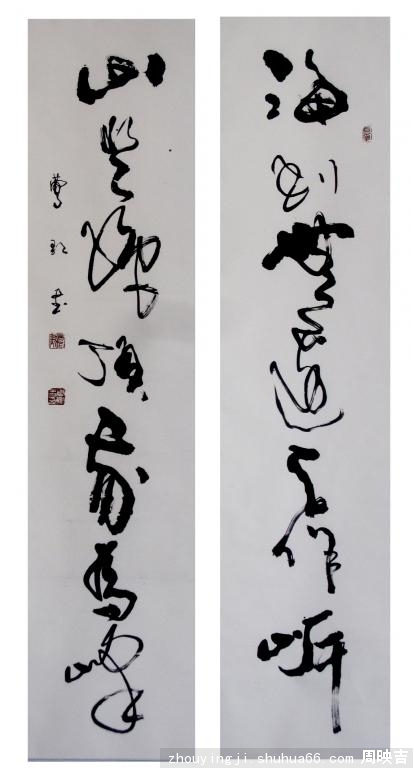 海到無邊天作岸
山登絕頂我為峰
zhouyingji.shuhua66.com 周映吉